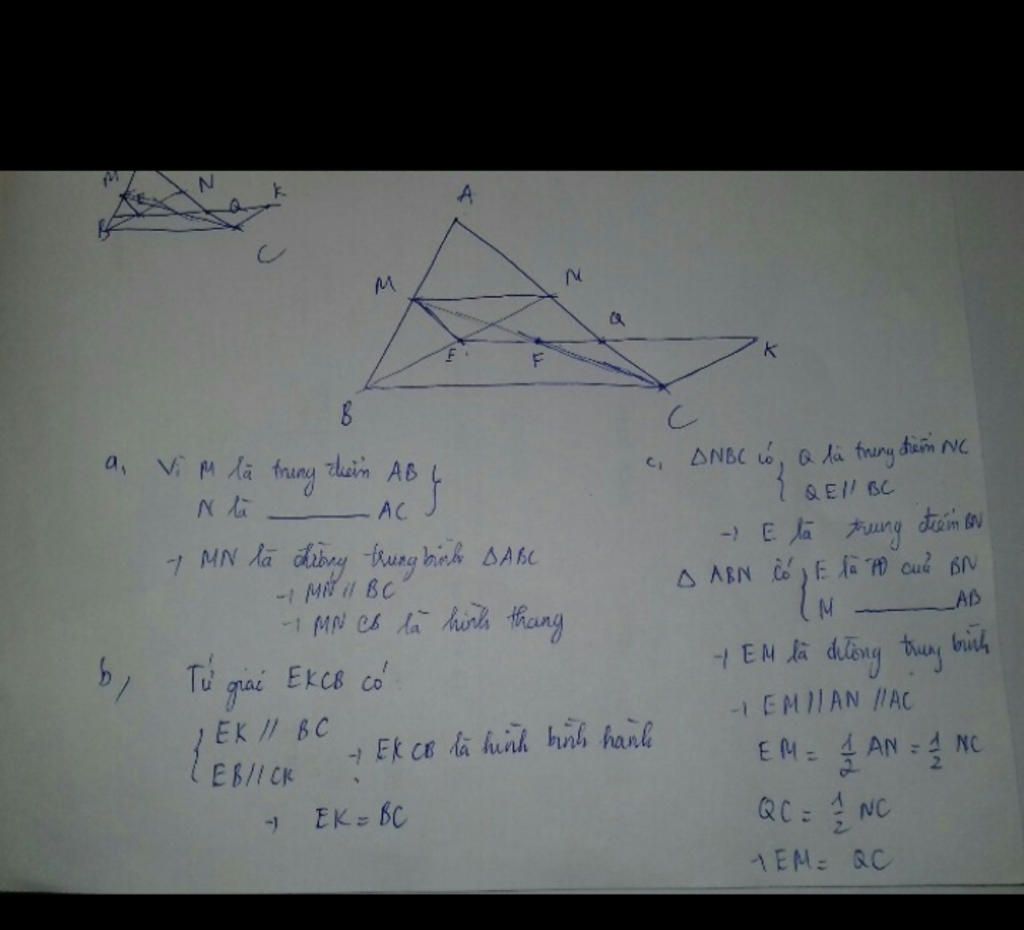 M N Q K
E
B C
A
M N
Q
E F K
B C
a, Vì M là trung điểm AB
N là ______ AC
→ MN là đường trung bình ΔABC
→ MN // BC
→ MNCB là hình thang
b, Tứ giác EKCB có
EK // BC
EB // CK
→ EKCB là hình bình hành
→ EK = BC
c, ΔNBC có Q là trung điểm NC
QE // BC
→ E là trung điểm BN
Δ ABN có E là TĐ của BN
M ______ AB
→ EM là đường trung bình
→ EM // AN // AC
EM = 1/2 AN = 1/2 NC
QC = 1/2 NC
→ EM = QC